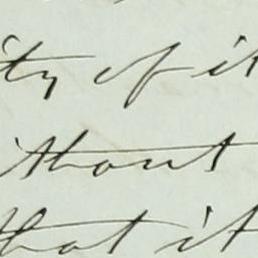 ity of it
ithout
that it